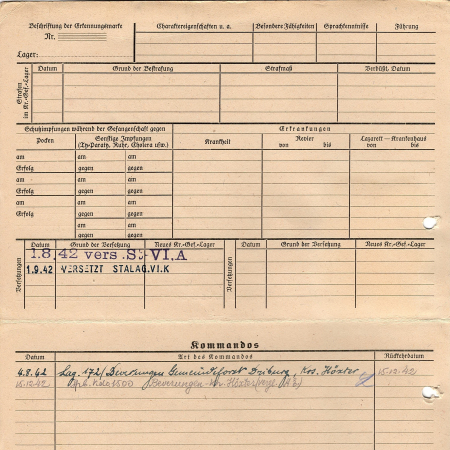 Beschriftung der Erkennungsmarke
Nr.
Lager:
Charaktereigenschaften u. a.
Besondere Fähigkeiten
Sprachkenntnisse
Führung
Strafen im Kr.-Gef.-Lager
Datum
Grund der Bestrafung
Strafmaß
Verbüßt, Datum
Schutzimpfungen während der Gefangenschaft gegen
Erkrankungen
Pocken
Sonstige Impfungen
(Ty.-Paraty, Ruhr, Cholera usw.)
Krankheit
Revier
von bis
Lazarett – Krankenhaus
von bis
am am am
Erfolg gegen gegen
am am am
Erfolg gegen gegen
am am am
Erfolg gegen gegen
am am
gegen gegen
Versetzungen
Datum Grund der Versetzung Neues Kr.-Gef.-Lager
Versetzungen
Datum Grund der Versetzung Neues Kr.-Gef.-Lager
1.8.42 vers. VI.A
1.9.42 VERSETZT STALAG.VI.K
Kommandos
Datum
Art des Kommandos
Rückkehrdatum
4.8.42 Lag. 172/Beverungen Gemeindeforst Driburg, Krs. Höxter 15.12.42
15.12.42 1500 Beverungen Höxter